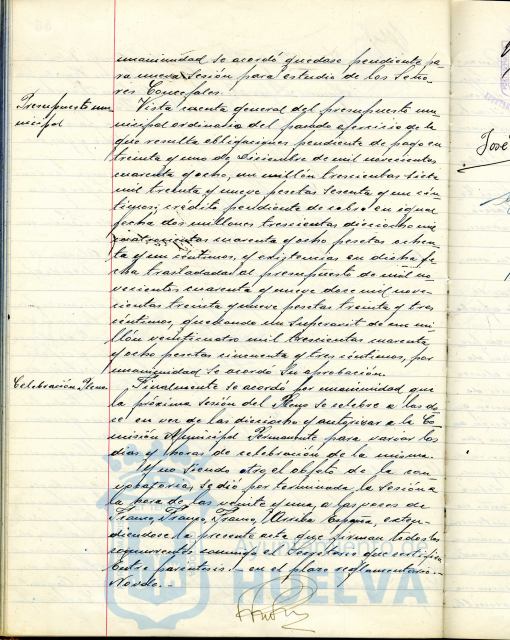 unanimidad se acordó quedase pendiente pa-
ra nueva sesión para estudio de los Seño-
res Concejales.
Presupuesto mu-
nicipal
Vista cuenta general del presupuesto mu-
nicipal ordinario del pasado ejercicio de la
que resulta obligaciones pendiente de pago en
treinta y uno de Diciembre de mil novecientos
cuarenta y ocho, un millón trescientas siete
mil treinta y nueve pesetas sesenta y un cén-
timos; crédito pendiente de cobro en igual
fecha dos millones trescientas dieciocho mil
cuatrocientas cuarenta y ocho pesetas ochen-
ta y un céntimos, y existencias en dicha fe-
cha trasladadas al presupuesto de mil no-
vecientos cuarenta y nueve doce mil nove-
cientas treinta y nueve pesetas treinta y tres
céntimos, quedando un superavit de un mi-
llón veinticuatro mil trescientas cuarenta
y ocho pesetas cincuenta y tres céntimos, por
unanimidad se acordó su aprobación.
Celebración Pleno
Finalmente se acordó por unanimidad que
la próxima sesión del Pleno se celebre a las do-
ce en vez de las dieciocho y autorizar a la Co-
misión Municipal Permanente para variar los
días y horas de celebración de la misma.
Y no siendo otro el objeto de la con-
vocatoria, se dió por terminada la sesión a
la hora de las veinte y una, a las voces de
Franco, Franco, Franco, ¡Arriba España, exten-
diendose la presente acta que firman todos los
concurrentes conmigo el Secretario que certifico
Entre parentesis: - en el plazo reglamentario =
Ayuntamiento de
HUELVA
José